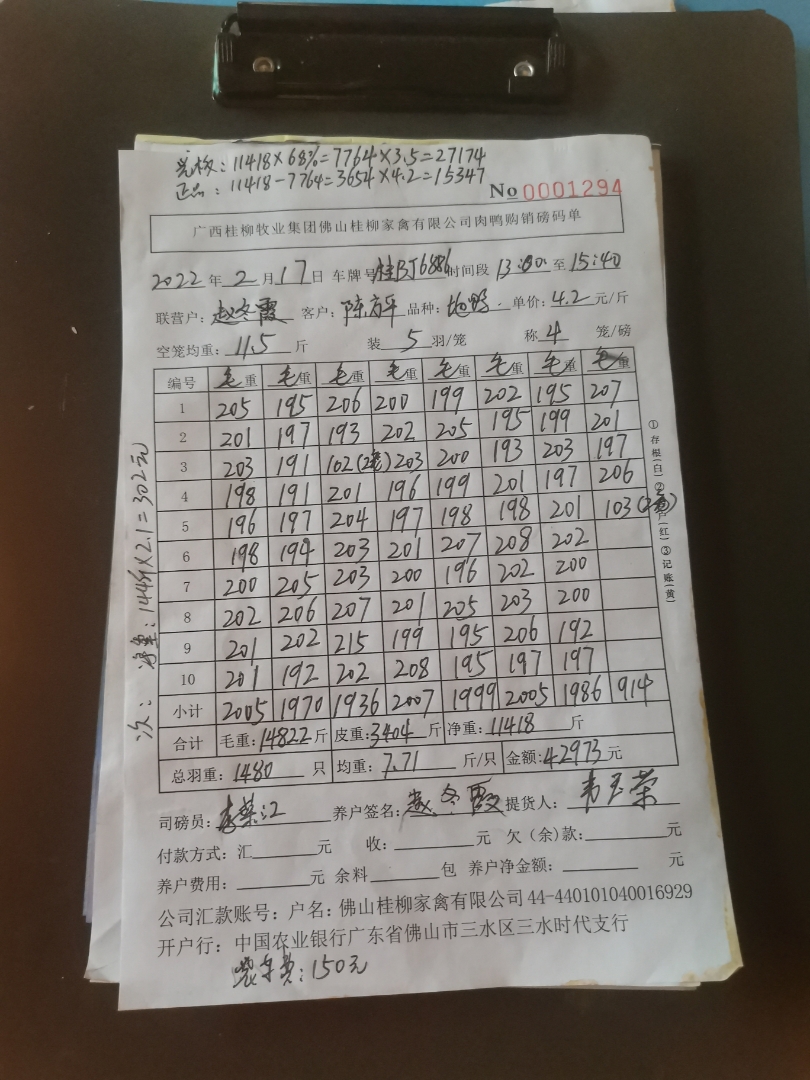 壳板：11418×68%=7764×3.5=27174
正品：11418-7764=3654×4.2=15347
No 0001294
广西桂柳牧业集团佛山桂柳家禽有限公司肉鸭购销磅码单
2022年 2月17日 车牌号 桂BJ6886 时间段 13:00 至 15:40
联营户：赵冬霞 客户：陈方平 品种： 单价：4.2元/斤
空笼均重：11.5斤 装 5 羽/笼 称 4 笼/磅
编号 毛重 毛重 毛重 毛重 毛重 毛重 毛重 毛重
1 205 195 206 200 199 202 195 207
2 201 197 193 202 205 195 199 201
3 203 191 102(2笼) 203 200 193 203 197
4 198 191 201 196 199 201 197 206
5 196 197 204 197 198 198 201 103(2笼)
6 198 194 203 201 207 208 202
7 200 205 203 200 196 202 200
8 202 206 207 201 205 203 200
9 201 202 215 199 195 206 192
10 201 192 202 208 195 197 197
小计 2005 1970 1936 2007 1999 2005 1986 914
合计 毛重：14822斤 皮重：3404斤 净重：11418 斤
总羽重：1480 只 均重：7.71 斤/只 金额：42973元
司磅员： 养户签名：赵冬霞 提货人：韦玉荣
付款方式：汇 元 收： 元 欠（余）款： 元
养户费用： 元 余料 包 养户净金额： 元
公司汇款账号：户名：佛山桂柳家禽有限公司 44-440101040016929
开户行：中国农业银行广东省佛山市三水区三水时代支行
装车费：150元
次：净重：144斤×2.1=302元
①存根（白）②客户（红）③记账（黄）